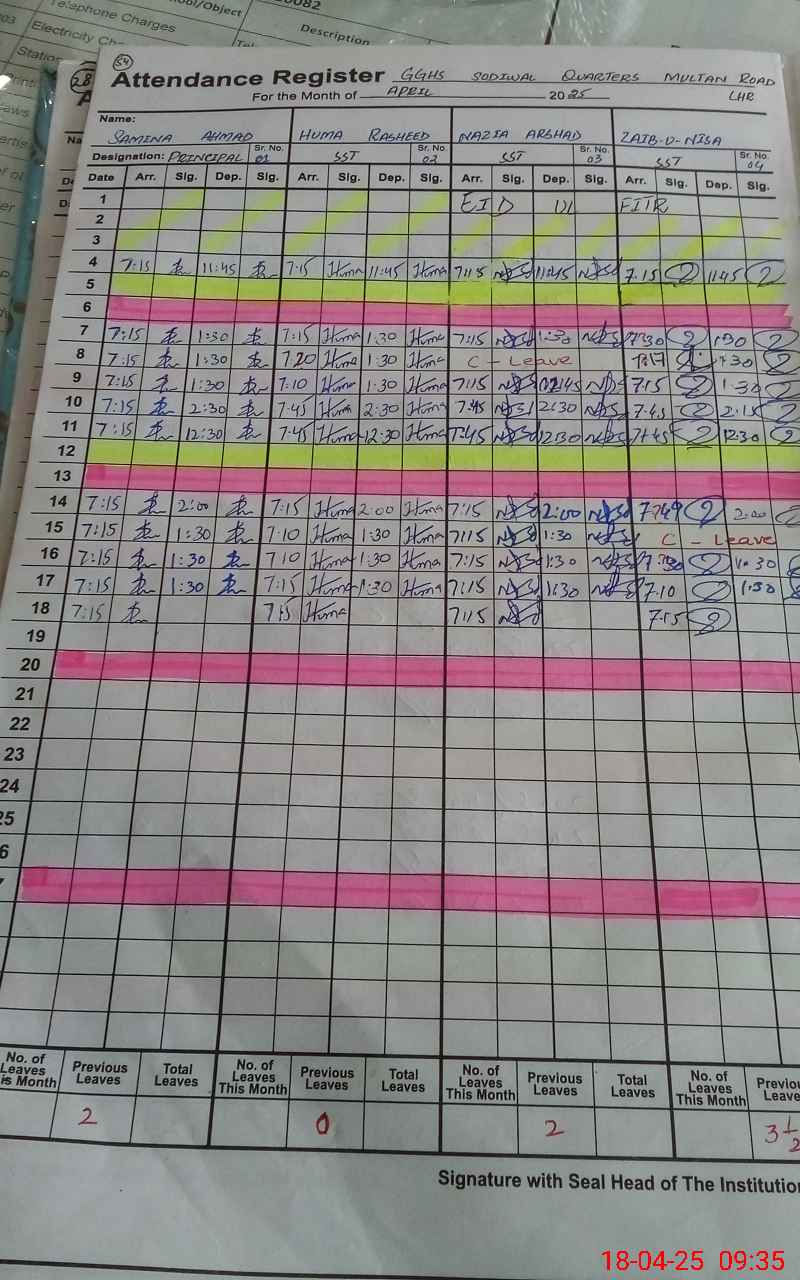 Telephone Charges
ool/Object
0082
03 Electricity Ch
Description
Station
Printi
aws
ertis
of ol
er
28
54
Attendance Register GGHS SODIWAL QUARTERS MULTAN ROAD
For the Month of APRIL 2025 LHR
Name:
SAMINA AHMAD HUMA RASHEED NAZIA ARSHAD ZAIB-U-NISA
Designation: PRINCIPAL Sr. No. 01 SST Sr. No. 02 SST Sr. No. 03 SST Sr. No. 04
Date Arr. Sig. Dep. Sig. Arr. Sig. Dep. Sig. Arr. Sig. Dep. Sig. Arr. Sig. Dep. Sig.
1 EID UL FITR
2
3
4 7:15 11:45 7:15 Huma 11:45 Huma 7:15 11:45 7.15 11:45
5
6
7 7:15 1:30 7:15 Huma 1:30 Huma 7:15 1:30 7:30 1:30
8 7:15 1:30 7:20 Huma 1:30 Huma C - Leave 1:30
9 7:15 1:30 7:10 Huma 1:30 Huma 7:15 7:15 1:30
10 7:15 2:30 7:45 Huma 2:30 Huma 7:45 2:30 7:45 2:15
11 7:15 12:30 7:45 Huma 12:30 Huma 7:45 12:30 7:45 12:30
12
13
14 7:15 2:00 7:15 Huma 2:00 Huma 7:15 2:00 2:00
15 7:15 1:30 7:10 Huma 1:30 Huma 7:15 1:30 C - Leave
16 7:15 1:30 7:10 Huma 1:30 Huma 7:15 1:30 1:30
17 7:15 1:30 7:15 Huma 1:30 Huma 7:15 1:30 7.10 1:30
18 7:15 7:15 Huma 7:15 7.15
19
20
21
22
23
24
25
6
No. of Leaves is Month Previous Leaves Total Leaves No. of Leaves This Month Previous Leaves Total Leaves No. of Leaves This Month Previous Leaves Total Leaves No. of Leaves This Month Previou Leave
2 0 2 3 1/2
Signature with Seal Head of The Institutio
18-04-25 09:35